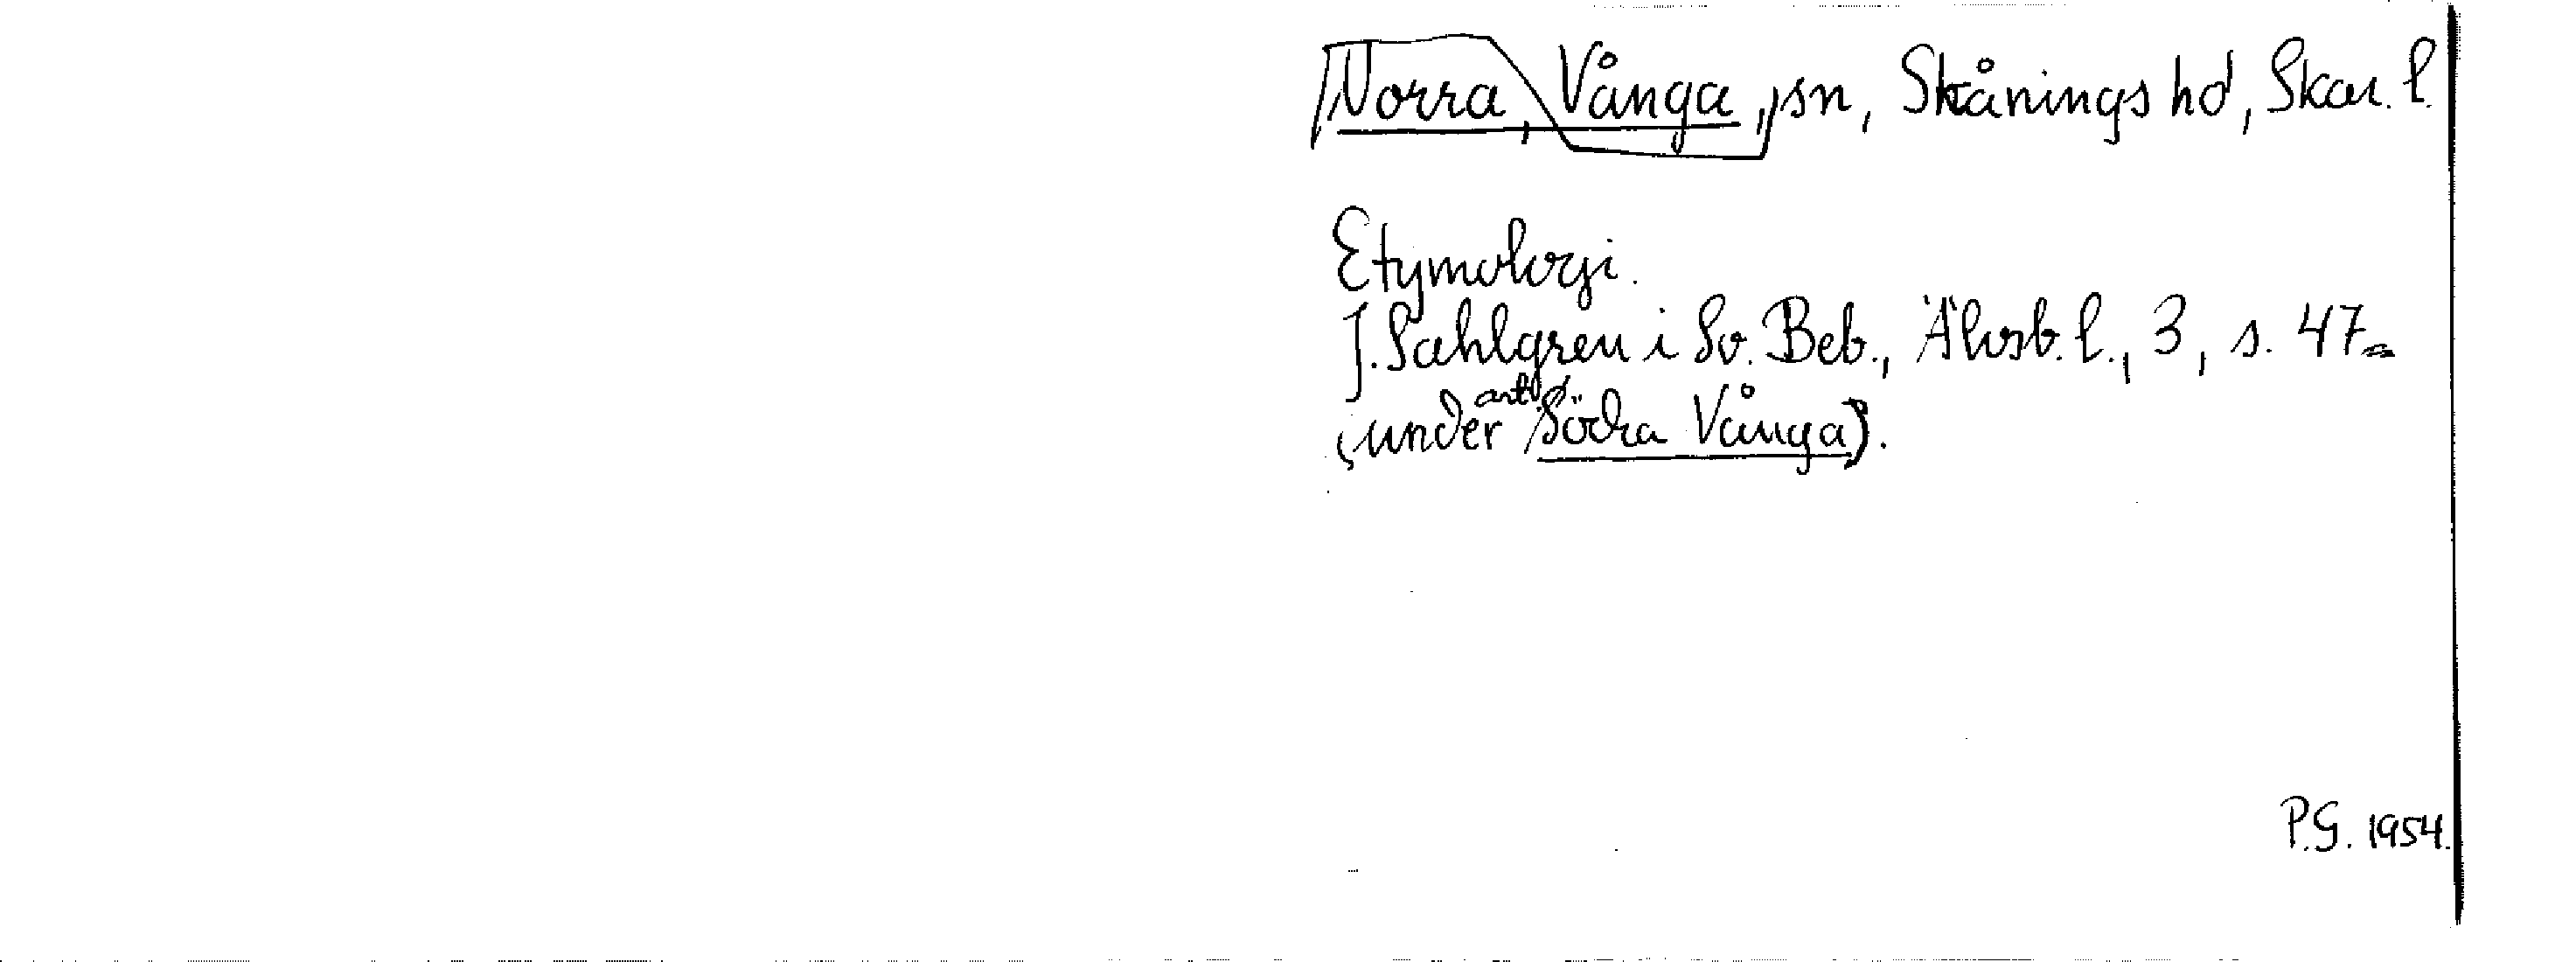 Norra, Vånga, sn, Skånings hd, Skar. l.
Etymologi.
J. Sahlgren i Sv. Beb., Älvsb. l., 3, s. 47
(under art. Södra Vånga).
P.G. 1954.